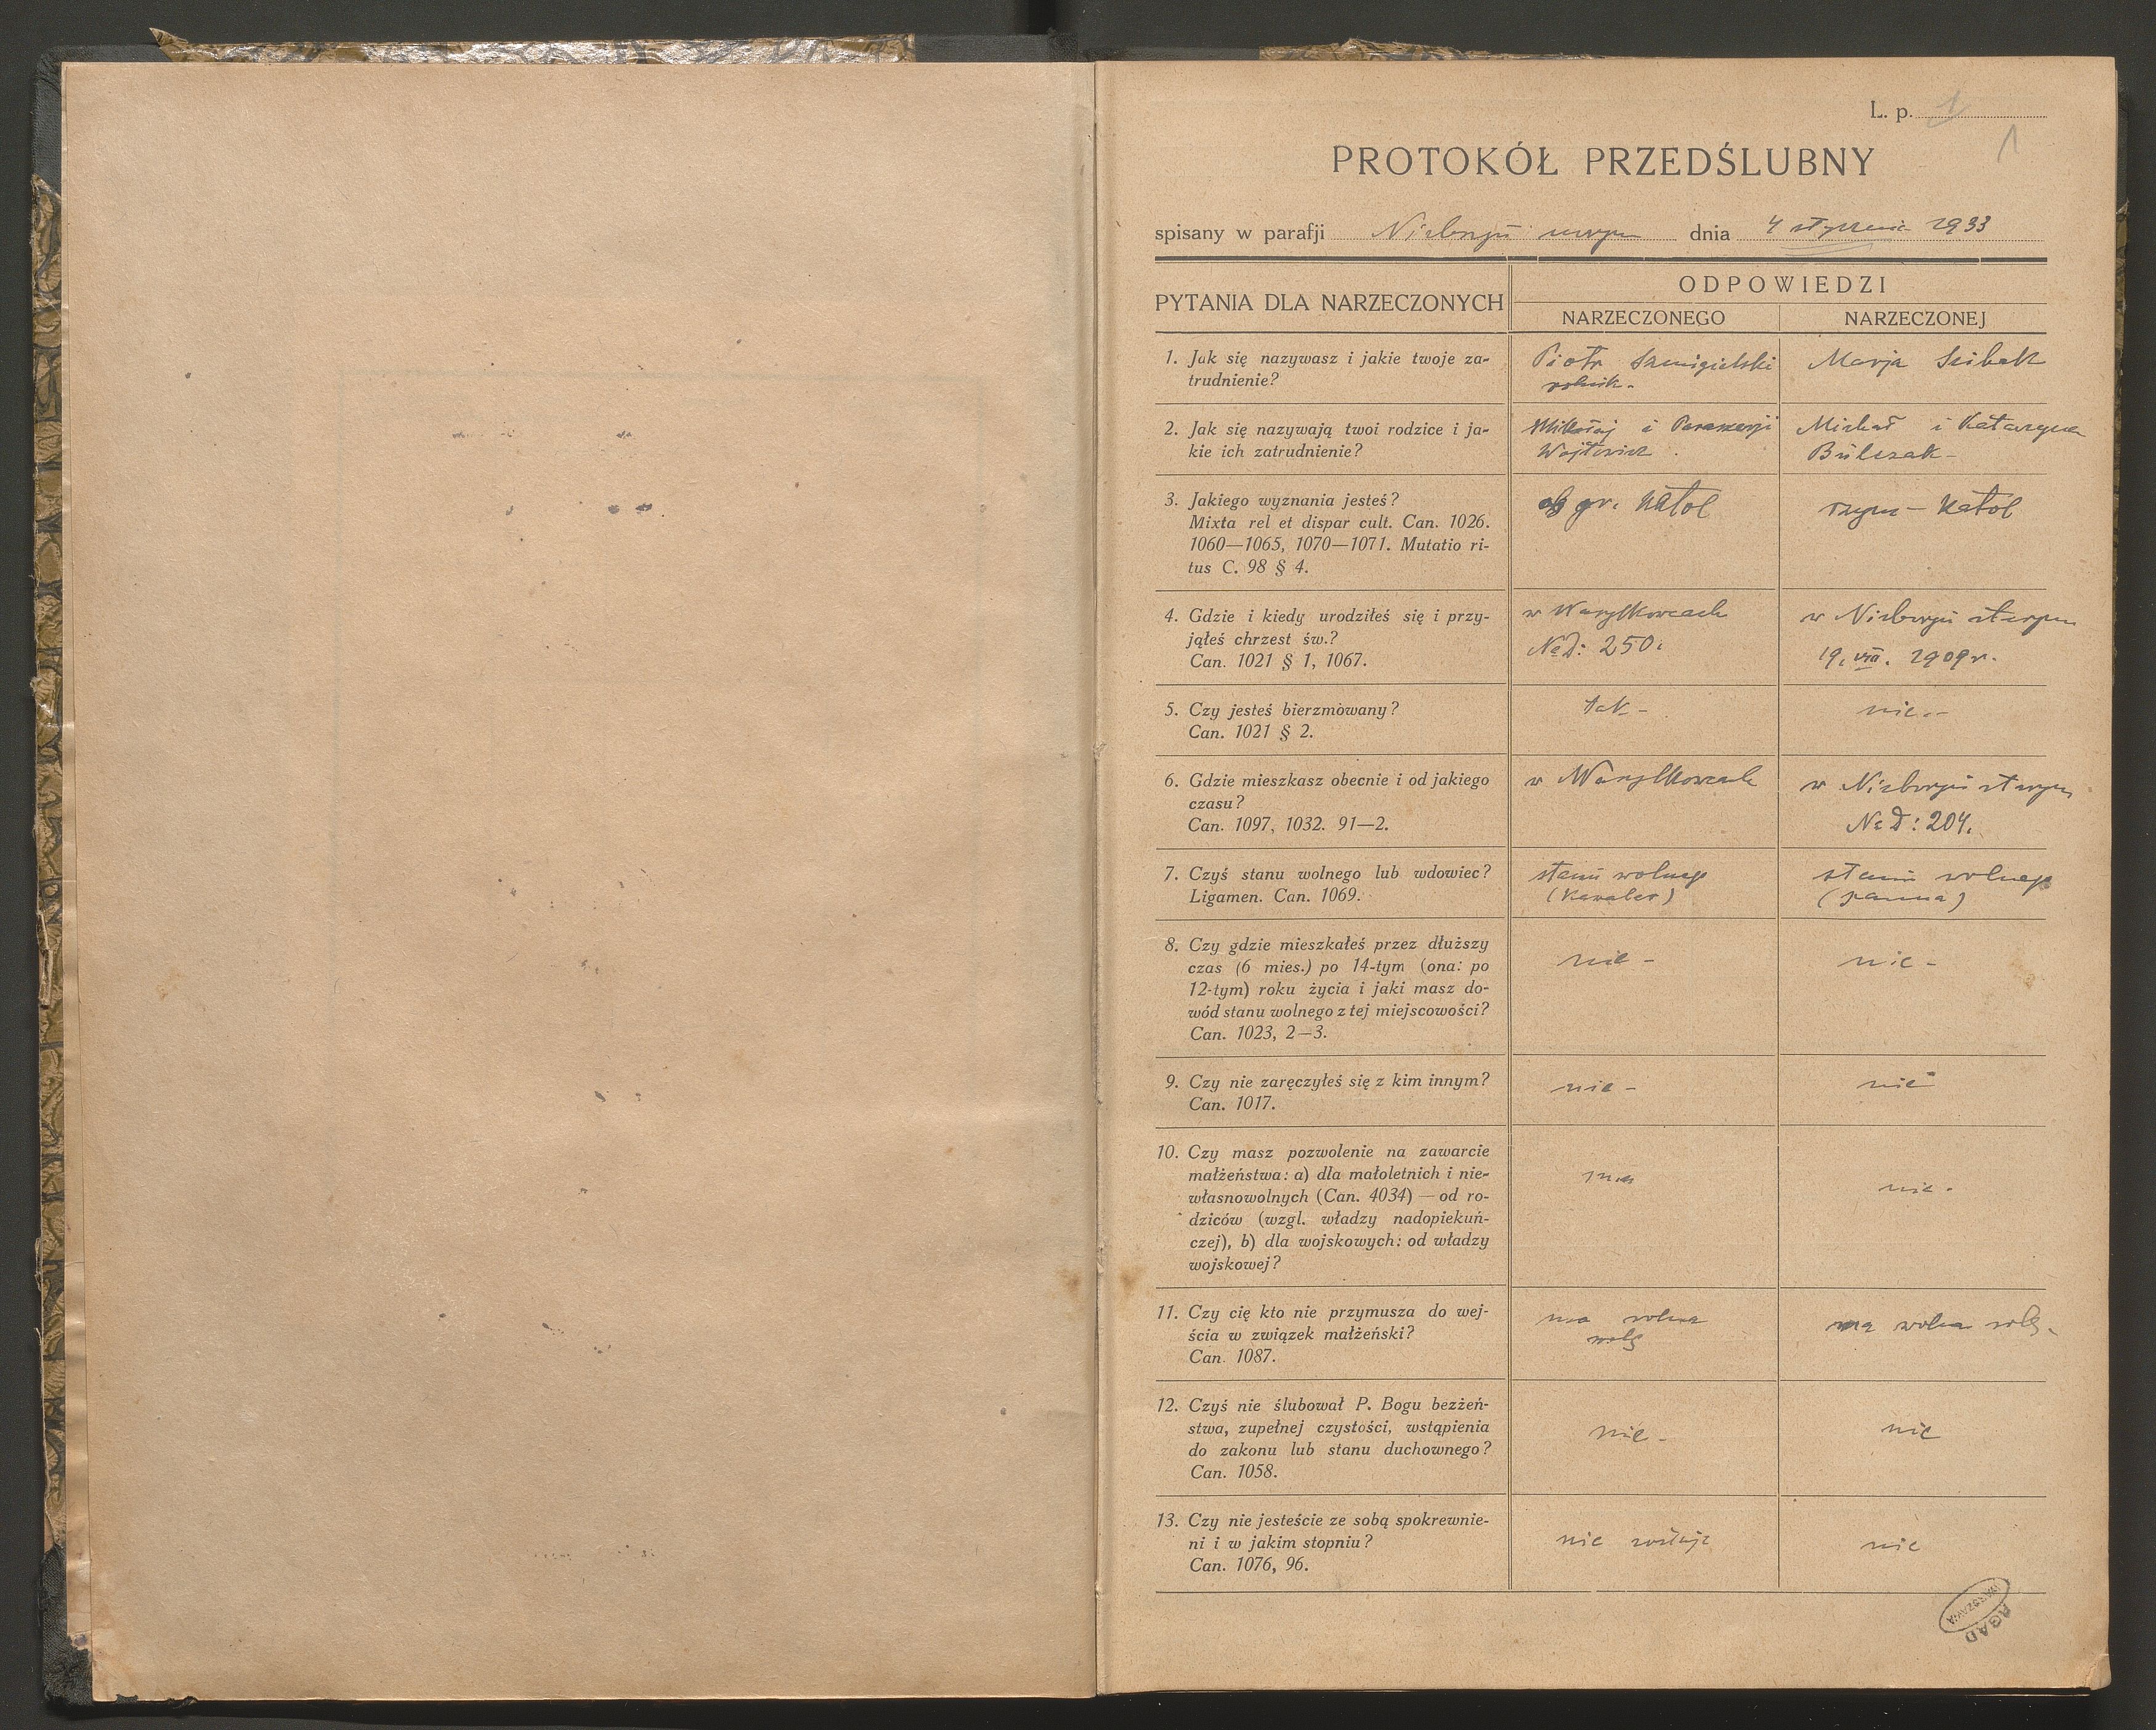 L. p. 1
1
PROTOKÓŁ PRZEDŚLUBNY
spisany w parafji Niżborgu nowym dnia 4 stycznia 1933
PYTANIA DLA NARZECZONYCH
ODPOWIEDZI
NARZECZONEGO
NARZECZONEJ
1. Jak się nazywasz i jakie twoje za-
trudnienie?
Piotr Szmigielski
rolnik -
Marja
2. Jak się nazywają twoi rodzice i ja-
kie ich zatrudnienie?
Mikołaj i Paraskewji
Wójtowicz
Michał i Katarzyna
Bulczak -
3. Jakiego wyznania jesteś?
Mixta rel et dispar cult. Can. 1026.
1060—1065, 1070—1071. Mutatio ri-
tus C. 98 § 4.
ob gr. katol
rzym - katol
4. Gdzie i kiedy urodziłeś się i przy-
jąłeś chrzest św.?
Can. 1021 § 1, 1067.
w Wasylkowcach
No D: 250.
w Niżborgu starym
19. VIII. 1909 r.
5. Czy jesteś bierzmowany?
Can. 1021 § 2.
tak -
nie. -
6. Gdzie mieszkasz obecnie i od jakiego
czasu?
Can. 1097, 1032. 91—2.
w Wasylkowcach
w Niżborgu starym
No D: 204.
7. Czyś stanu wolnego lub wdowiec?
Ligamen. Can. 1069.
stanu wolnego
(kawaler)
stanu wolnego
(panna)
8. Czy gdzie mieszkałeś przez dłuższy
czas (6 mies.) po 14-tym (ona: po
12-tym) roku życia i jaki masz do-
wód stanu wolnego z tej miejscowości?
Can. 1023, 2—3.
nie -
nie -
9. Czy nie zaręczyłeś się z kim innym?
Can. 1017.
nie -
nie
10. Czy masz pozwolenie na zawarcie
małżeństwa: a) dla małoletnich i nie-
własnowolnych (Can. 4034) — od ro-
dziców (wzgl. władzy nadopiekuń-
czej), b) dla wojskowych: od władzy
wojskowej?
ma
nie -
11. Czy cię kto nie przymusza do wej-
ścia w związek małżeński?
Can. 1087.
ma wolna
wolę
ma wolna wolę -
12. Czyś nie ślubował P. Bogu bezżeń-
stwa, zupełnej czystości, wstąpienia
do zakonu lub stanu duchownego?
Can. 1058.
nie -
nie
13. Czy nie jesteście ze sobą spokrewnie-
ni i w jakim stopniu?
Can. 1076, 96.
nie
nie
AGAD
WARSZAWA